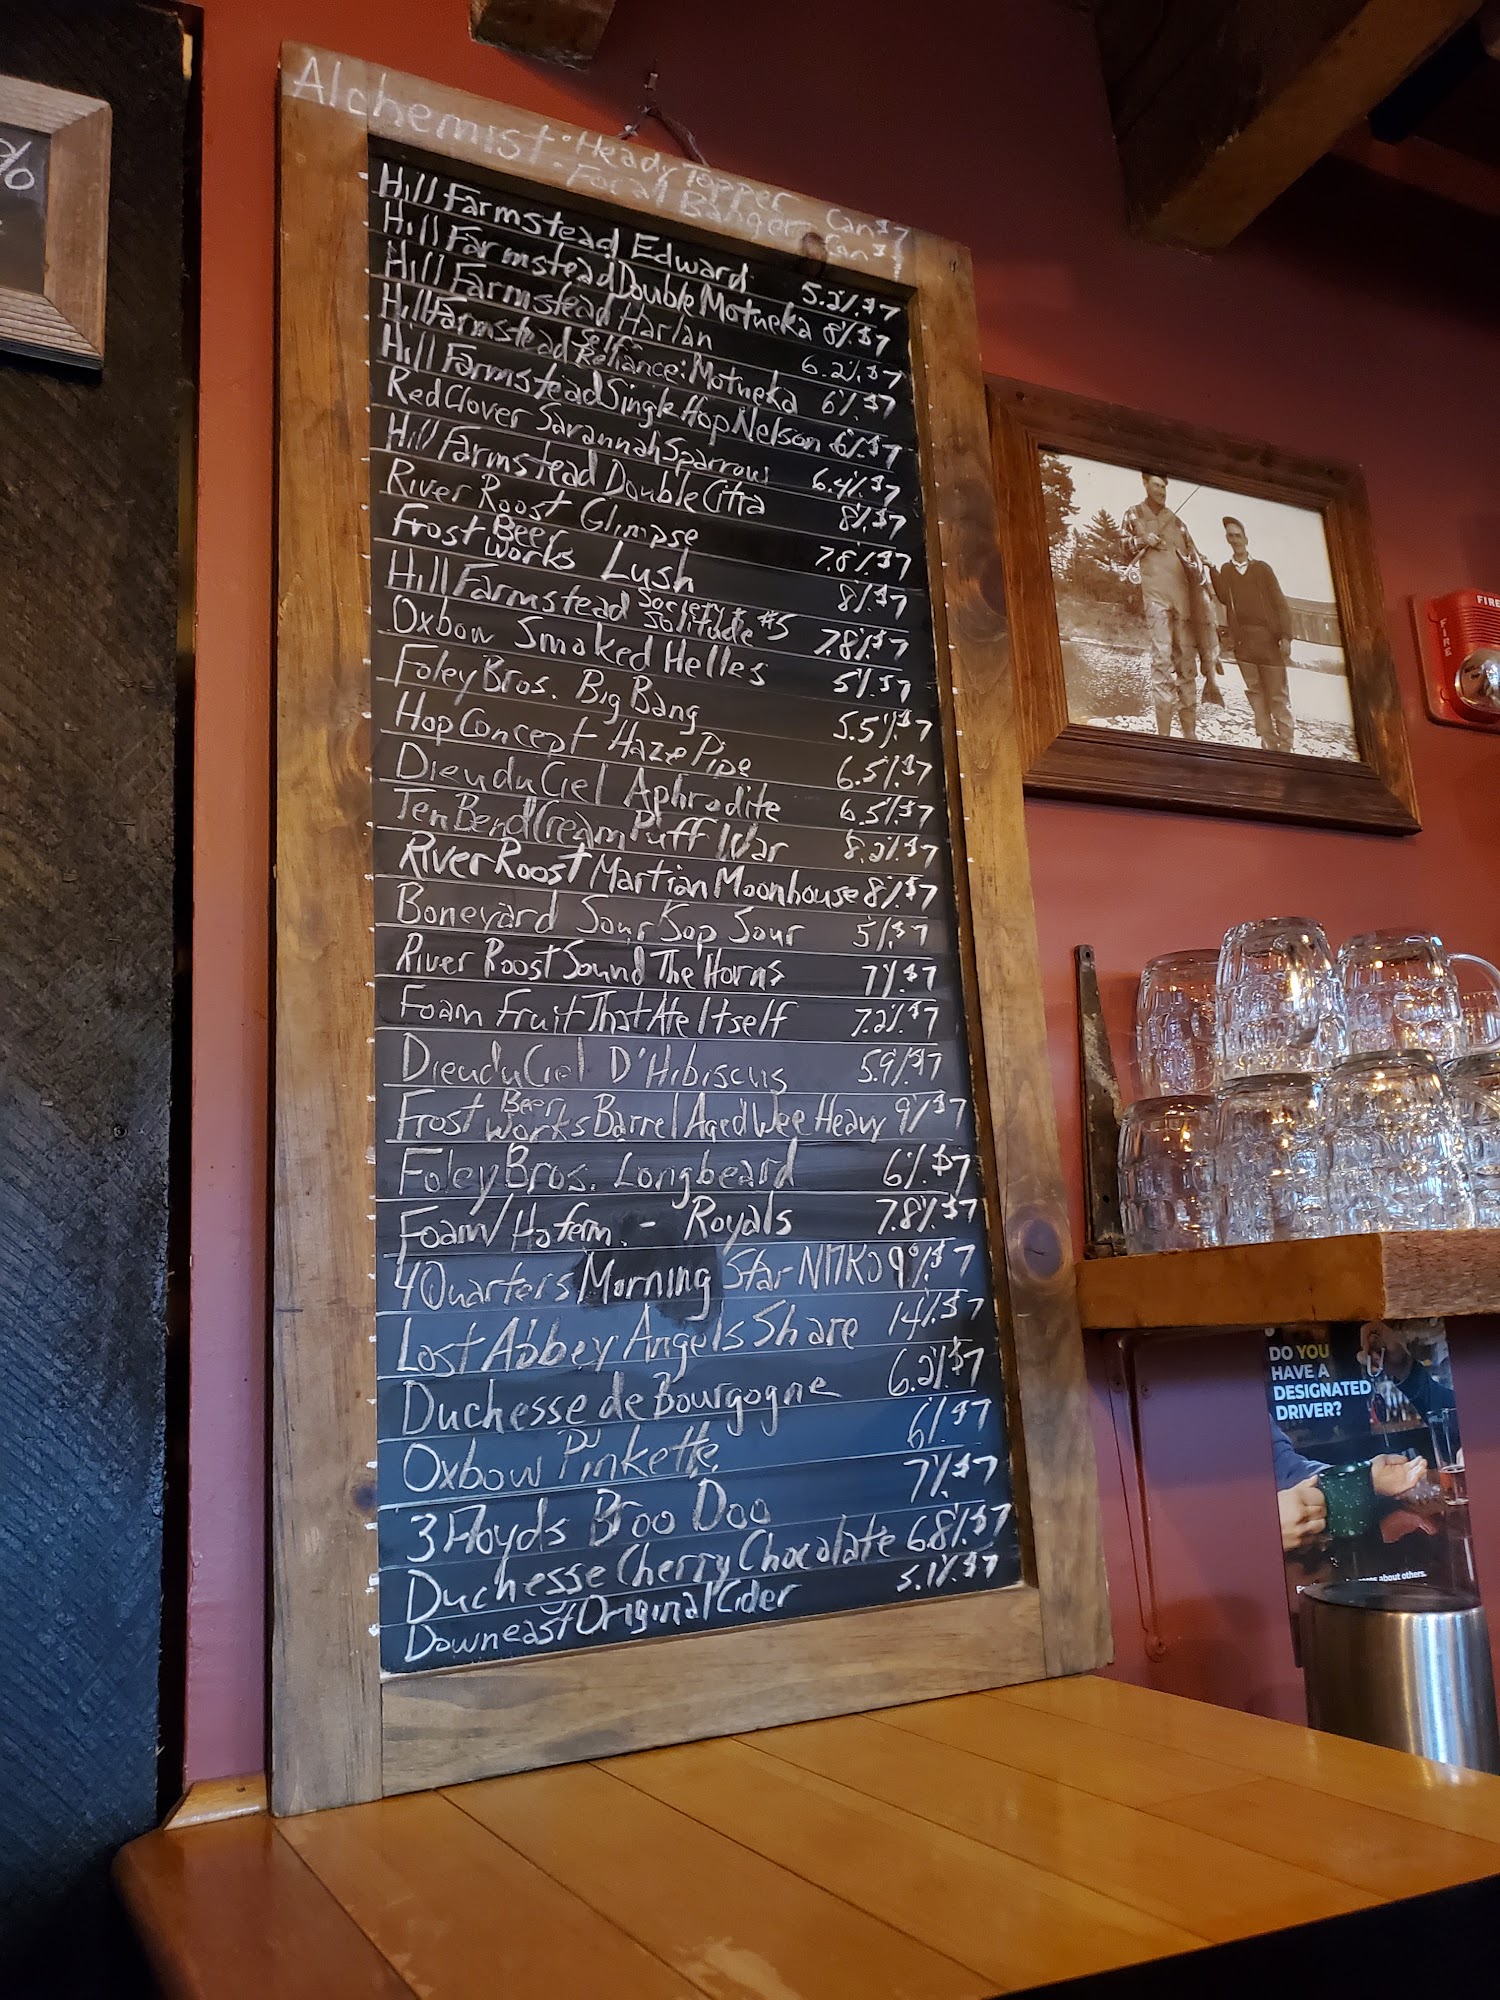 %
Alchemist: Heady Topper Can $7
Focal Banger Can $7
Hill Farmstead Edward 5.2% $7
Hill Farmstead Double Motueka 8% $7
Hill Farmstead Harlan 6.2% $7
Hill Farmstead Self-Reliance: Motueka 6% $7
Hill Farmstead Single Hop Nelson 6% $7
Red Clover Savannah Sparrow 6.4% $7
Hill Farmstead Double Citra 8% $7
River Roost Glimpse 7.8% $7
Frost Beer Works Lush 8% $7
Hill Farmstead Society & Solitude #5 7.8% $7
Oxbow Smoked Helles 5% $7
Foley Bros. Big Bang 5.5% $7
Hop Concept Haze Pipe 6.5% $7
Dieu du Ciel Aphrodite 6.5% $7
Ten Bend Cream Puff War 8.2% $7
River Roost Martian Moonhouse 8% $7
Boneyard Sour Sop Sour 5% $7
River Roost Sound The Horns 7% $7
Foam Fruit That Ate Itself 7.2% $7
Dieu du Ciel D'Hibiscus 5.9% $7
Frost Beer Works Barrel Aged Wee Heavy 9% $7
Foley Bros. Longbeard 6% $7
Foam/Hoferm. - Royals 7.8% $7
4 Quarters Morning Star - 9% $7
Lost Abbey Angels Share 14% $7
Duchesse de Bourgogne 6.2% $7
Oxbow Pinkette 6% $7
3 Floyds Broo Doo 7% $7
Duchesse Cherry Chocolate 6.8% $7
Downeast Original Cider 5.1% $7
FIRE
FIRE
DO YOU
HAVE A
DESIGNATED
DRIVER?
about others.